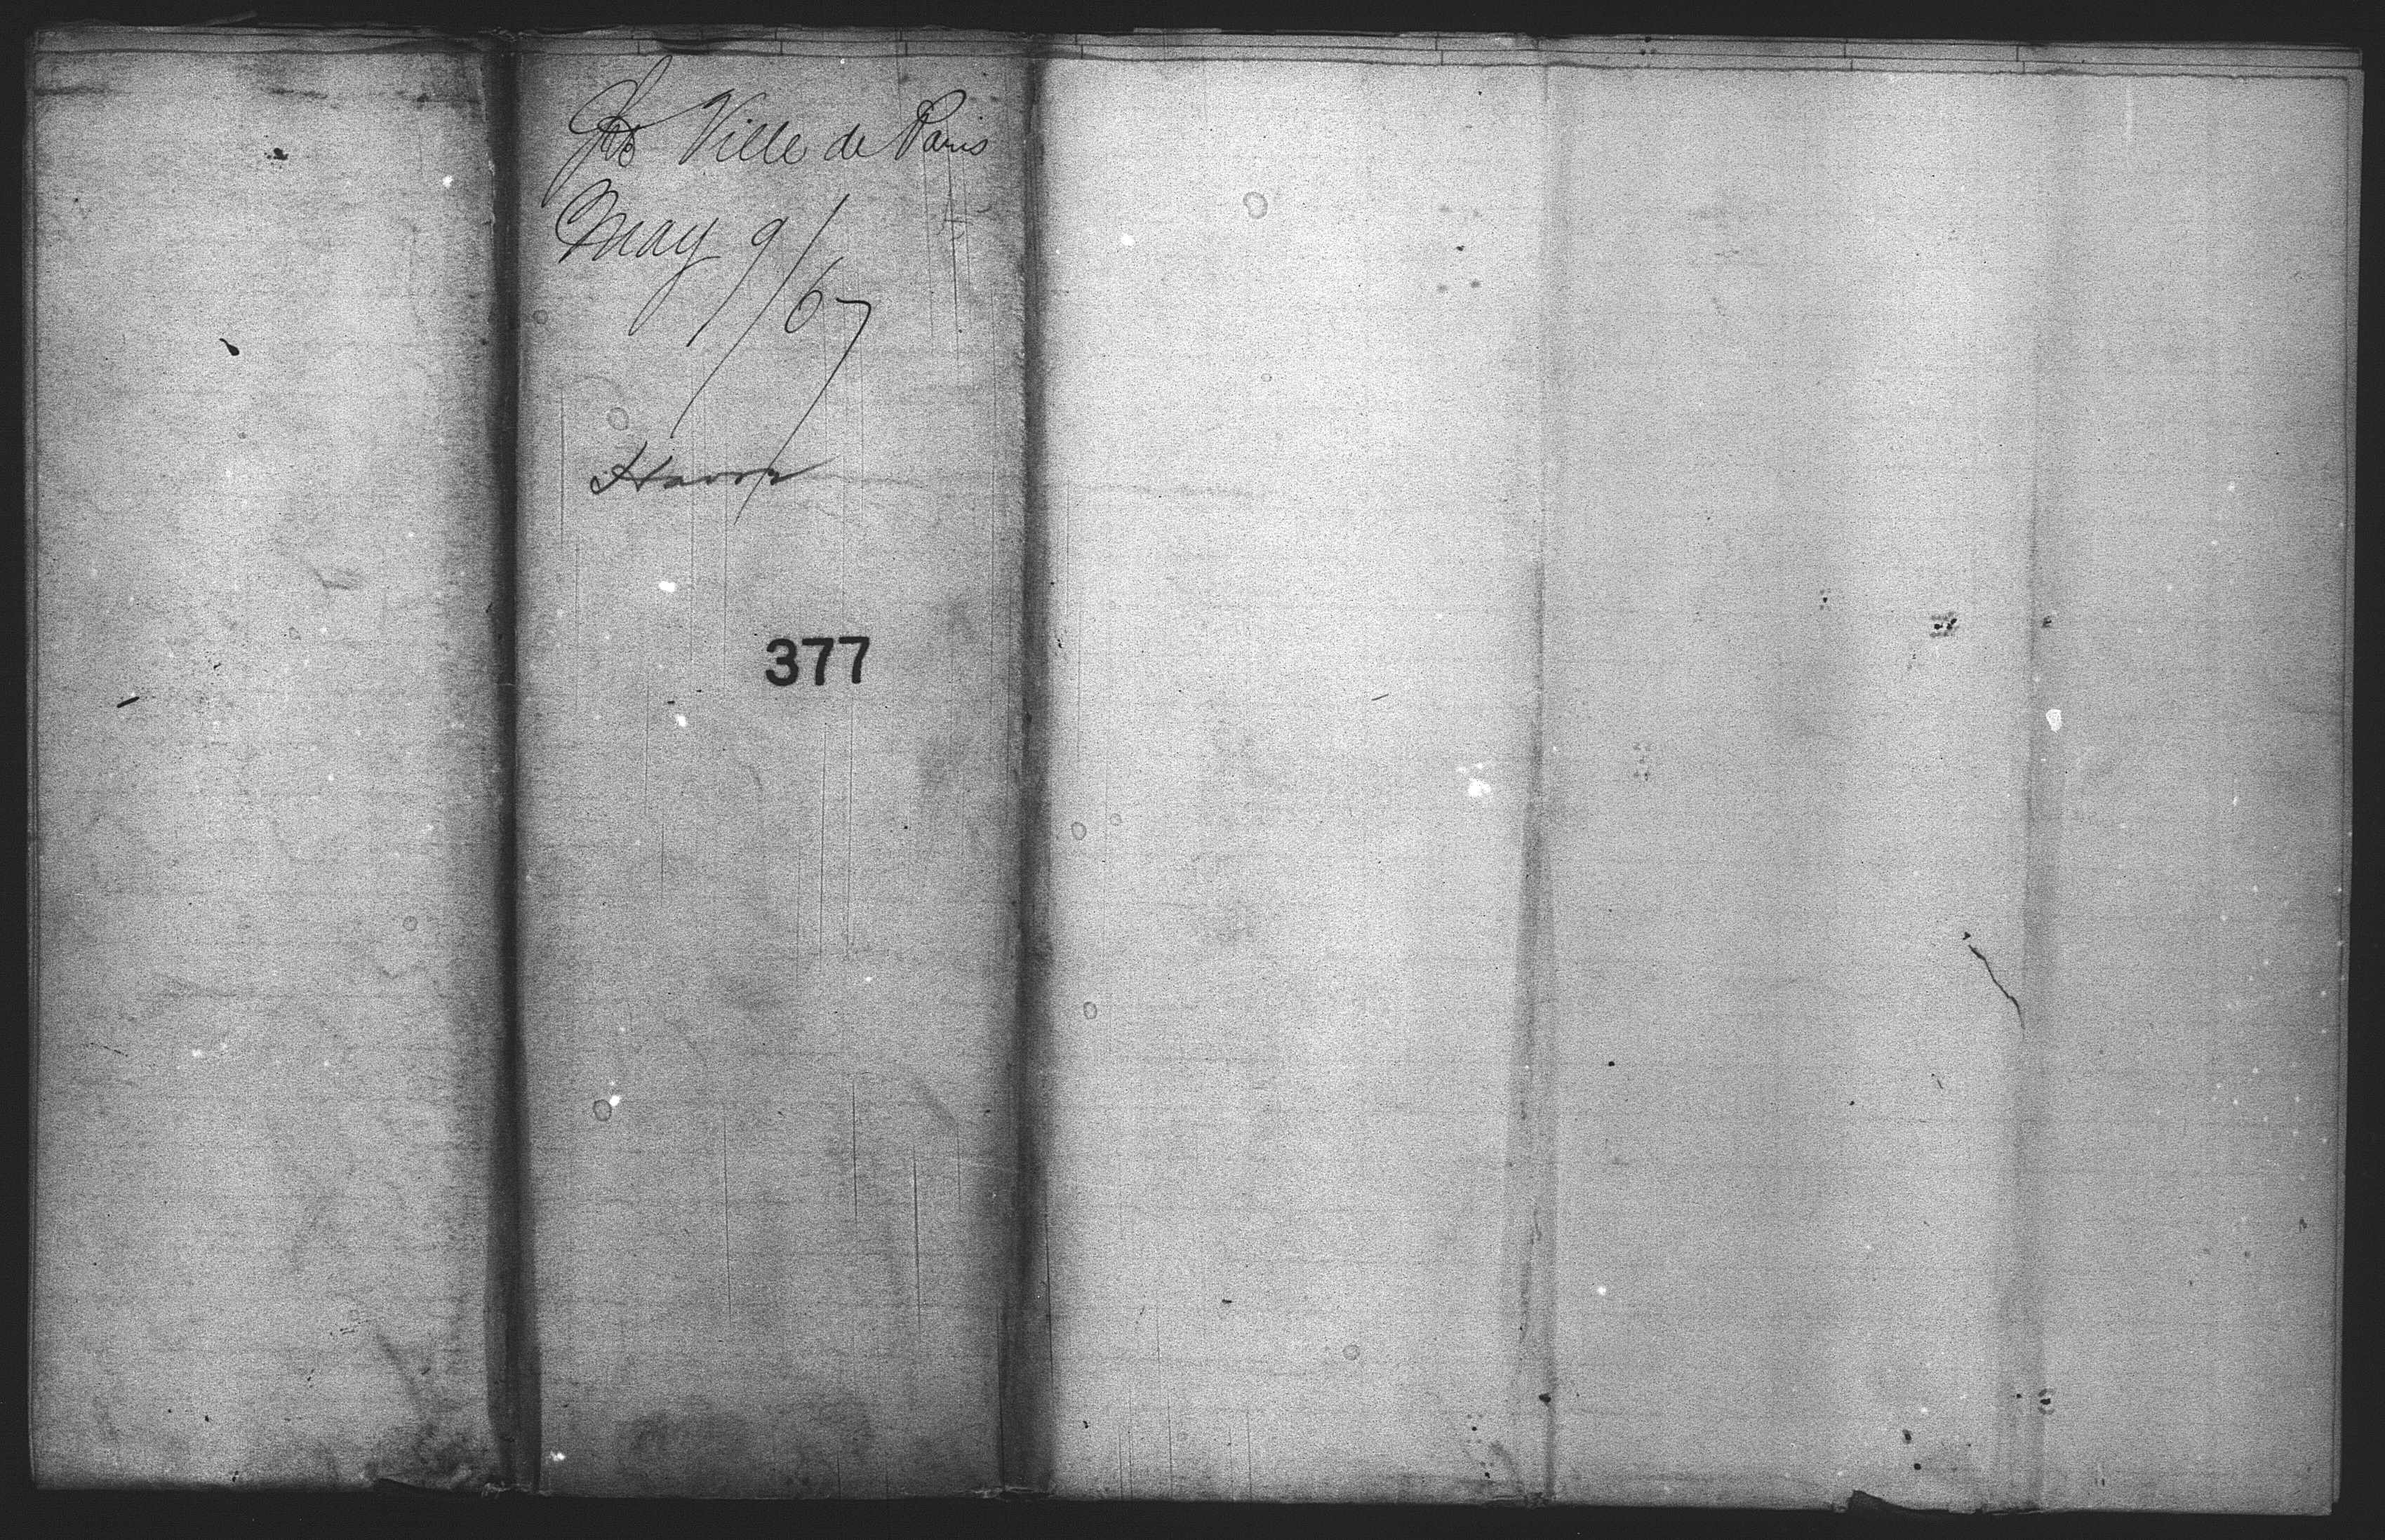 SS Ville de Paris
May 9/67
Havre
377